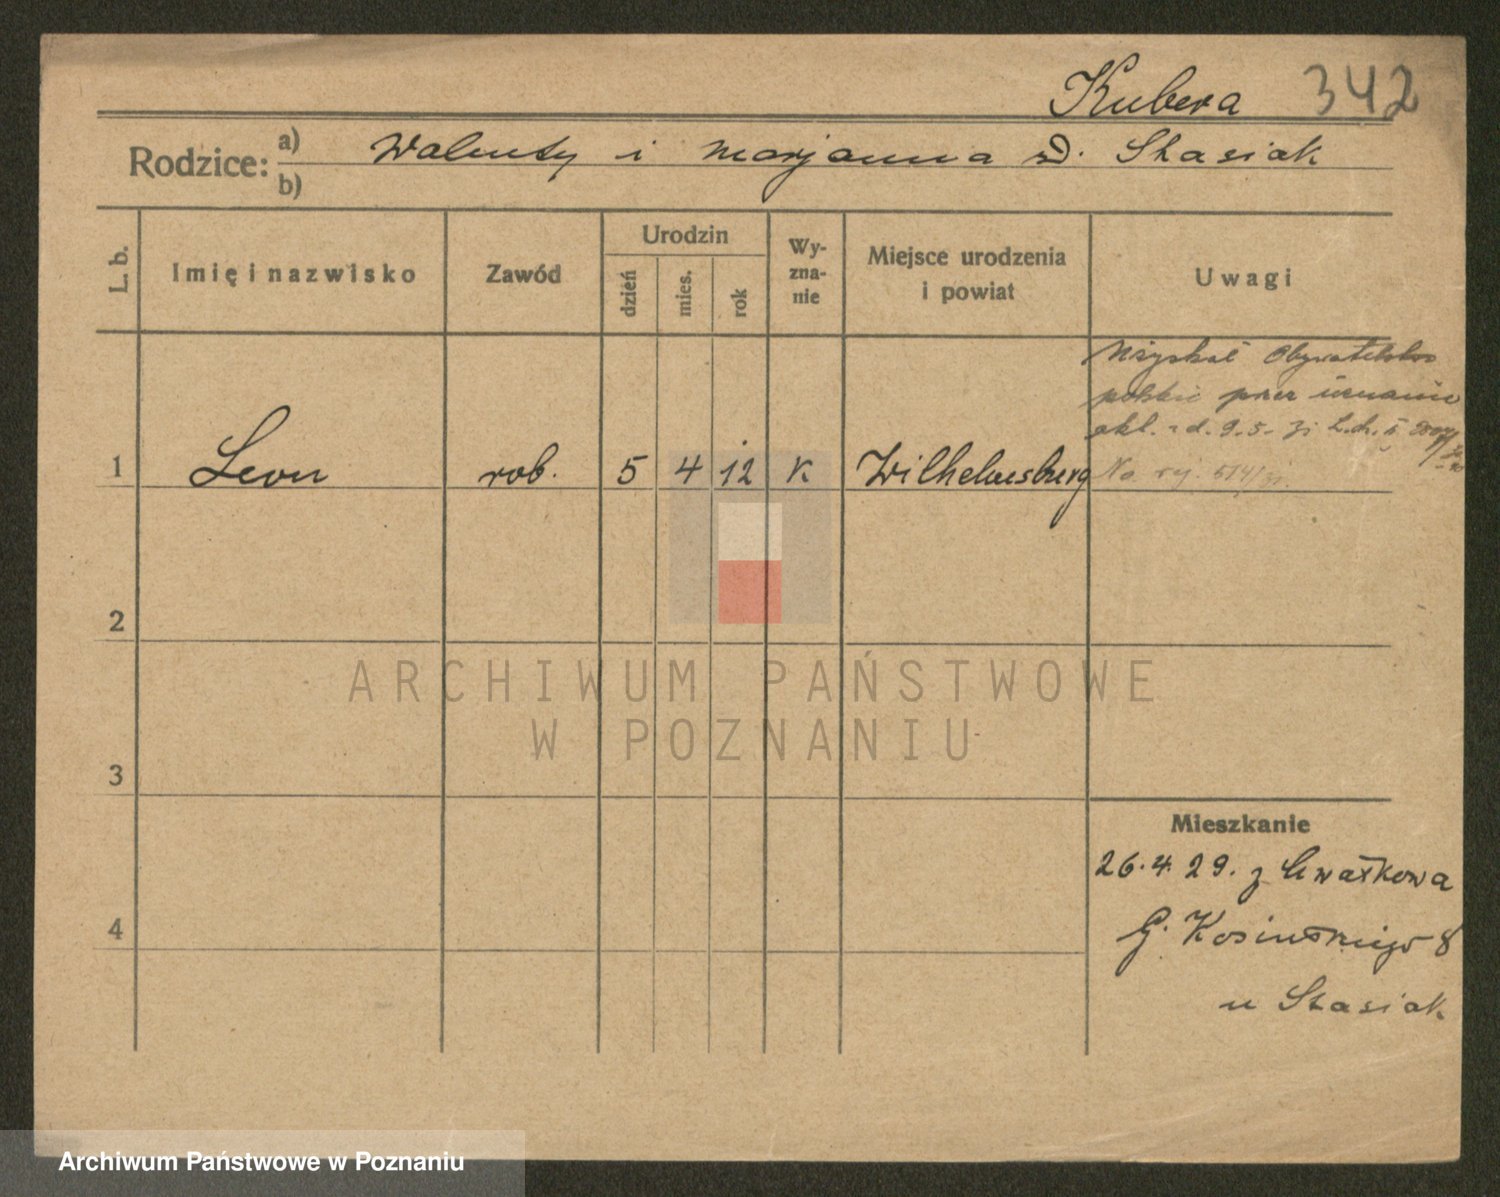 Kubera 342
Rodzice: a) Walenty i Marjanna d. Stasiak
b)
L. b.
Imię i nazwisko
Zawód
Urodzin
dzień
mies.
rok
Wy-
zna-
nie
Miejsce urodzenia
i powiat
Uwagi
1 Leon rob. 5 4 12 K Wilhelmsburg
Uzyskał Obywatelstwo
polskie przez uznanie
z d. 9.5.
No rej. 514/31.
2
3
4
Mieszkanie
26.4.29. z
G. Kosińskiego 8
u Stasiak
ARCHIWUM PAŃSTWOWE
W POZNANIU
Archiwum Państwowe w Poznaniu